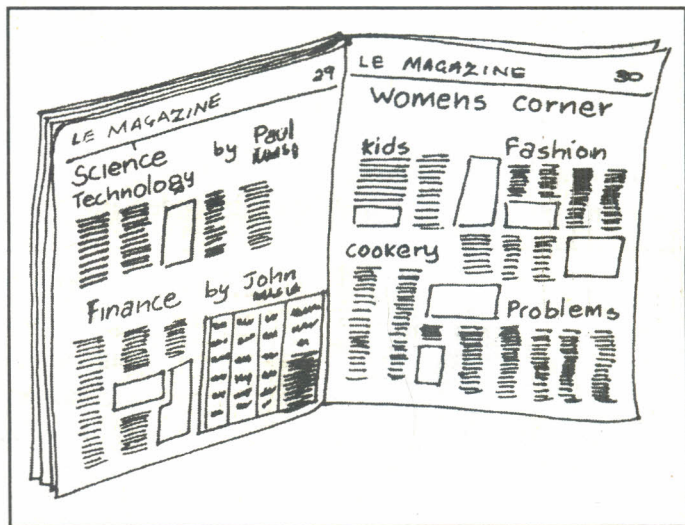 LE MAGAZINE 29
Science by Paul
Technology
Finance by John
LE MAGAZINE 30
Womens corner
Kids Fashion
Cookery
Problems